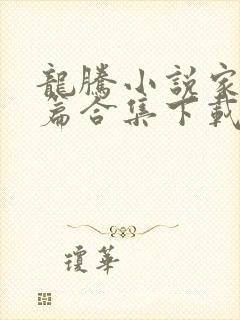 龍騰小説家
篇合集下載
瓊華